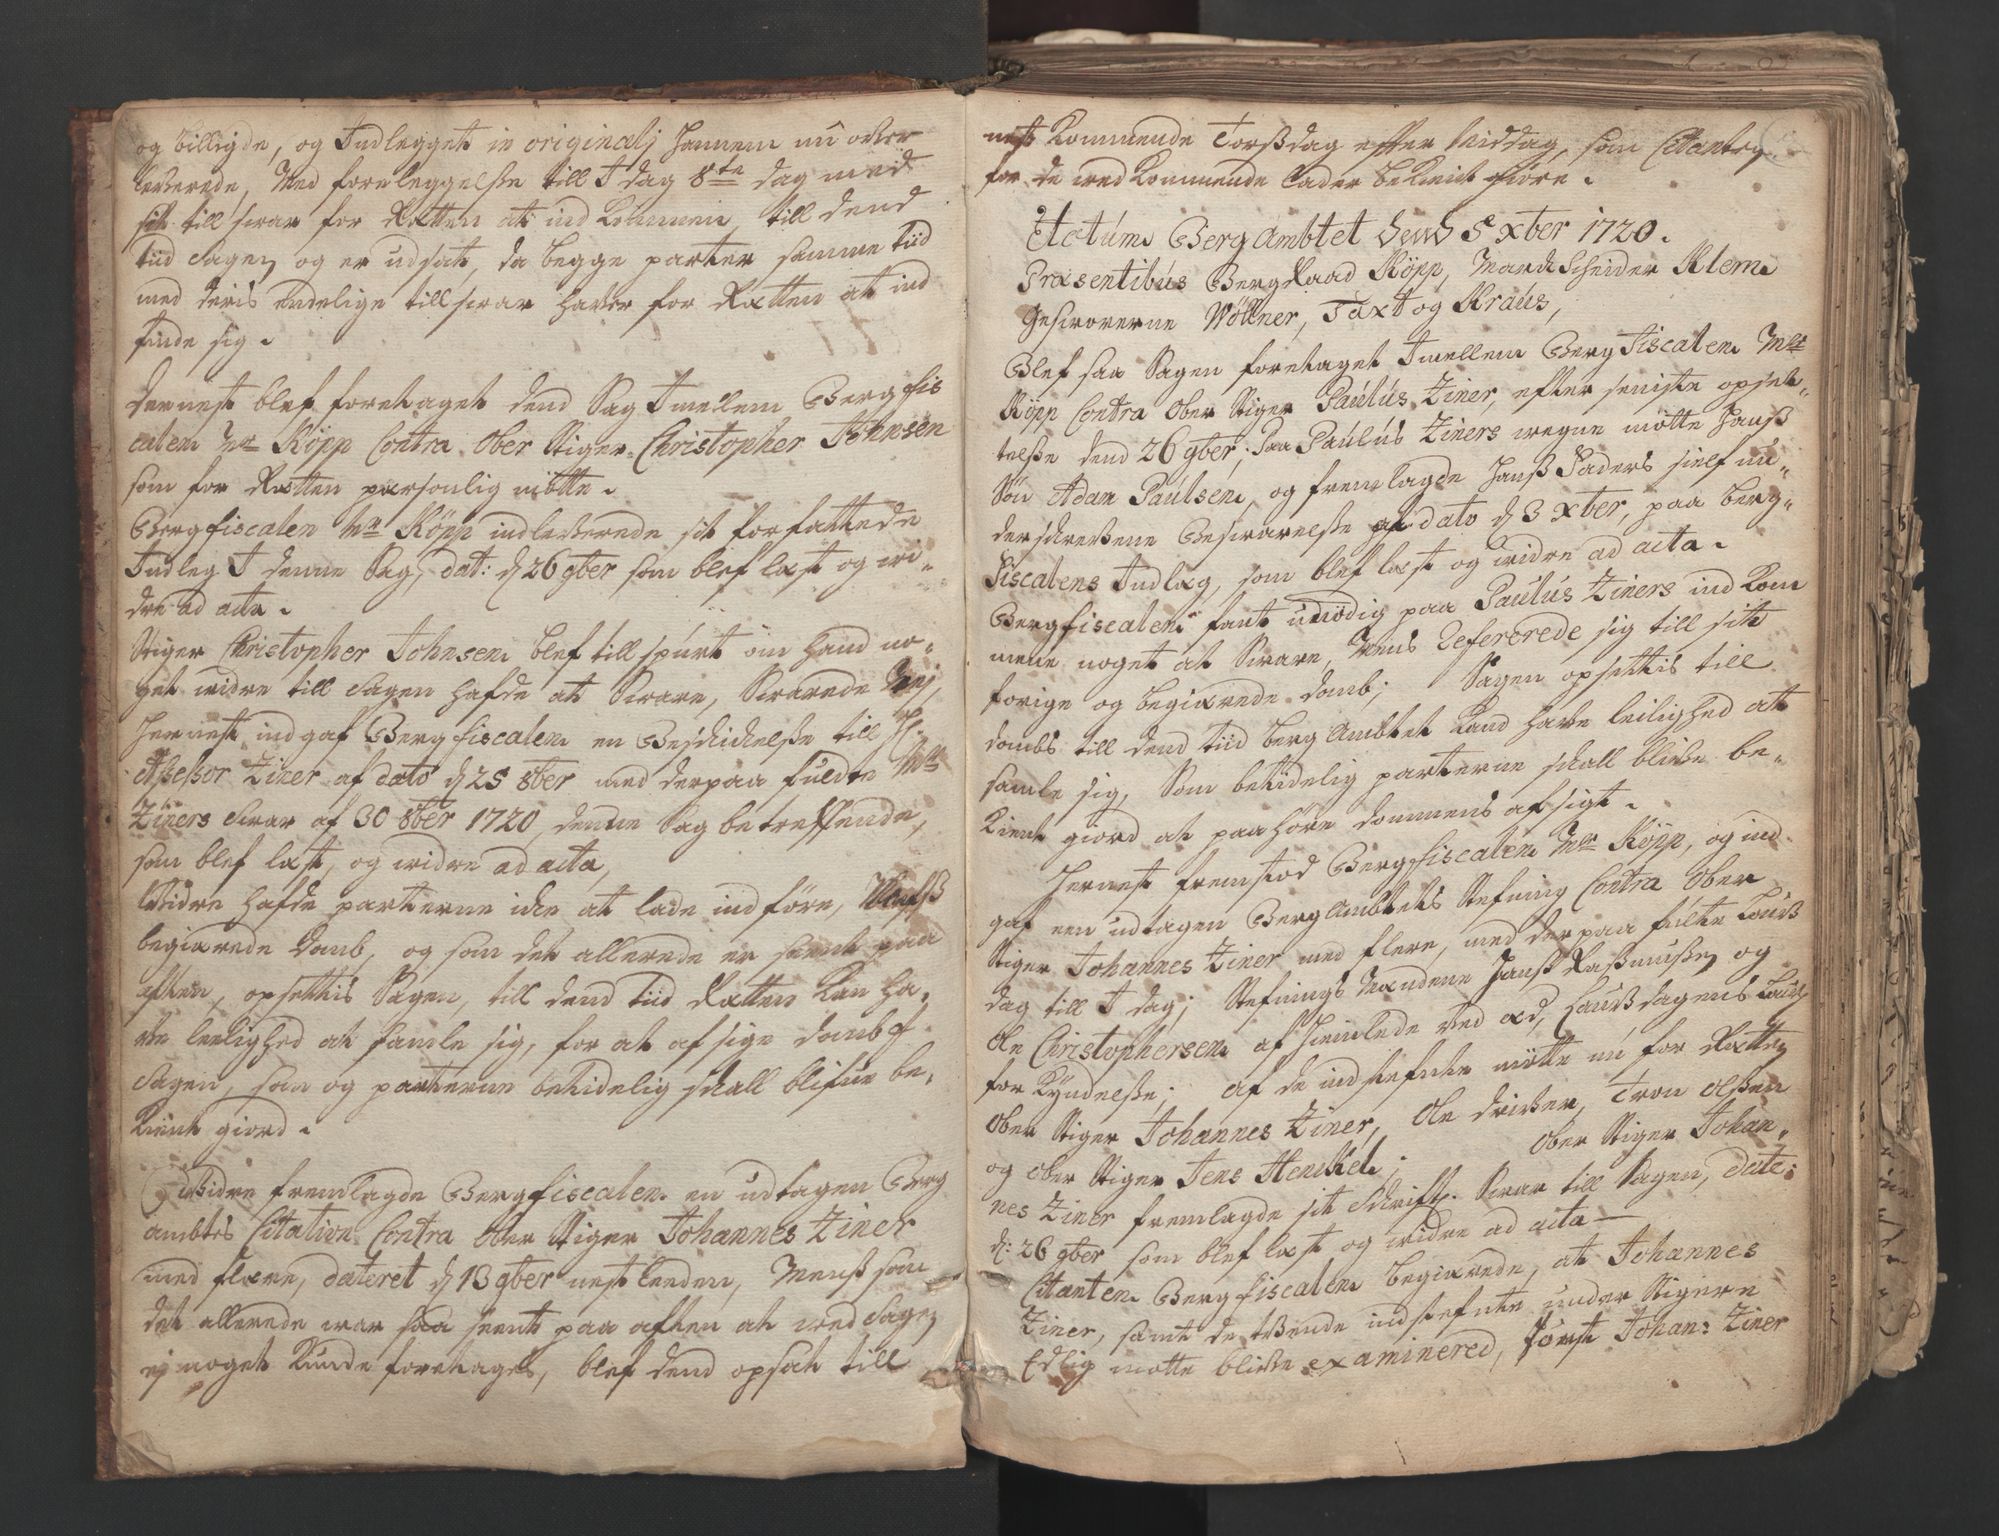 og billigde, og Indlegget in originali hannem nu over
leverede, Med foreleggelsse till I dag 8te dag med
sit till svar for Rætten at ind komme, till dend
tiid Sagen og er udsat, da begge parter samme tiid
med deris endelige tillsvar haver for Rætten at ind
finde sig.
Dernest blef foretaget dend Sag Imellem Berg fis
calen Mr Köpp Contra Ober Stiger Christopher Johnsen
som for Rætten personlig mötte.
Bergfiscalen Mr Köpp indleverede sit forfattede
Indleg I denne Sag, dat: d 26 9ber som blef læst og vi-
dre ad acta.
Stiger Christopher Johnsen blef till spurt om hand no-
get vidre till Sagen hafde at Svare, Svarede Nej,
Hernest indgaf Bergfiscalen en Beschickelsse till H.
Assessor Ziner af dato d 25 8ber med derpaa fuldte Mr
Ziners Svar af 30 8ber 1720, denne Sag betreffende,
som blef læst, og vidre ad acta,
Widre hafde parterne icke at lade indföre, Menss
begiærede Domb, og som det allerede er seent paa
aften, opsettis Sagen, till dend Tiid Rætten kan ha-
ve leelighed at samle sig, for at afsige domb I
Sagen, som og parterne betidelig schall blifue be-
kient giord.
Widre fremlagde Bergfiscalen en udtagen Berg
ambtes Citation Contra Ober Stiger Johannes Ziner
med flære, dateret d 13 9ber nest leeden, Menss som
det allerede war saa seent paa aften at ved Sagen
ej noget kunde foretages, blef dend opsat till
nest kommende Torssdag efter Middag, som Citanten
for de vedkommende lader bekient giöre.
Actum BergAmbtet dend 5 xber 1720.
Præsentibus BergRaad Köpp, Marckscheider Klem
Gesvorerne Wöllner, Taxt og Kraus,
Blef saa Sagen foretaget Imellem BergFiscalen Mr
Köpp Contra Ober Stiger Paulus Ziner, efter seniste opset-
telsse dend 26 9ber; Paa Paulus Ziners vegne mötte Hanss
Sön Adam Paulsen, og fremlagde Hanss Faders sielf un-
derschrevene Besvarelsse af dato d 3 xber, paa Berg-
Fiscalens Indlæg, som blef læst og vidre ad acta.
Bergfiscalen fant unödig paa Paulus Ziners ind kom
mene noget at Svare, Mens Refererede sig till sit
forige og begiærede domb; Sagen opsettis till
dombs till dend tiid BergAmbtet kand have leilighed at
samle sig, Som betidelig parterne schall blive be-
kient giord at paahöre dommens afsigt.
Hernest fremstod Bergfiscalen Mr Köpp, og ind
gaf een udtagen BergAmbtets Stefning Contra Ober
Stiger Johannes Ziner med flere, med derpaa fulte Laug
dag till I dag; Stefnings Mændene Hanss Rassmussen og
Ole Christophersen afhiemlede ved æd, Laugdagens Laug
for kyndelsse; af de indstefnte mötte nu for Rætten
Ober Stiger Johannes Ziner, Ole driver, Tron Olssen
og Ober Stiger Jens Henckel; Ober Stiger Johan-
nes Ziner fremlagde sit Schriftl. Svar till Sagen, date:
d: 26 9ber som blef læst og vidre ad acta
Citanten Bergfiscalen begiærede, at Johannes
Ziner, samt de tvende indstefnte under Stigere
Edlig motte blive examinered, först Johan: Ziner